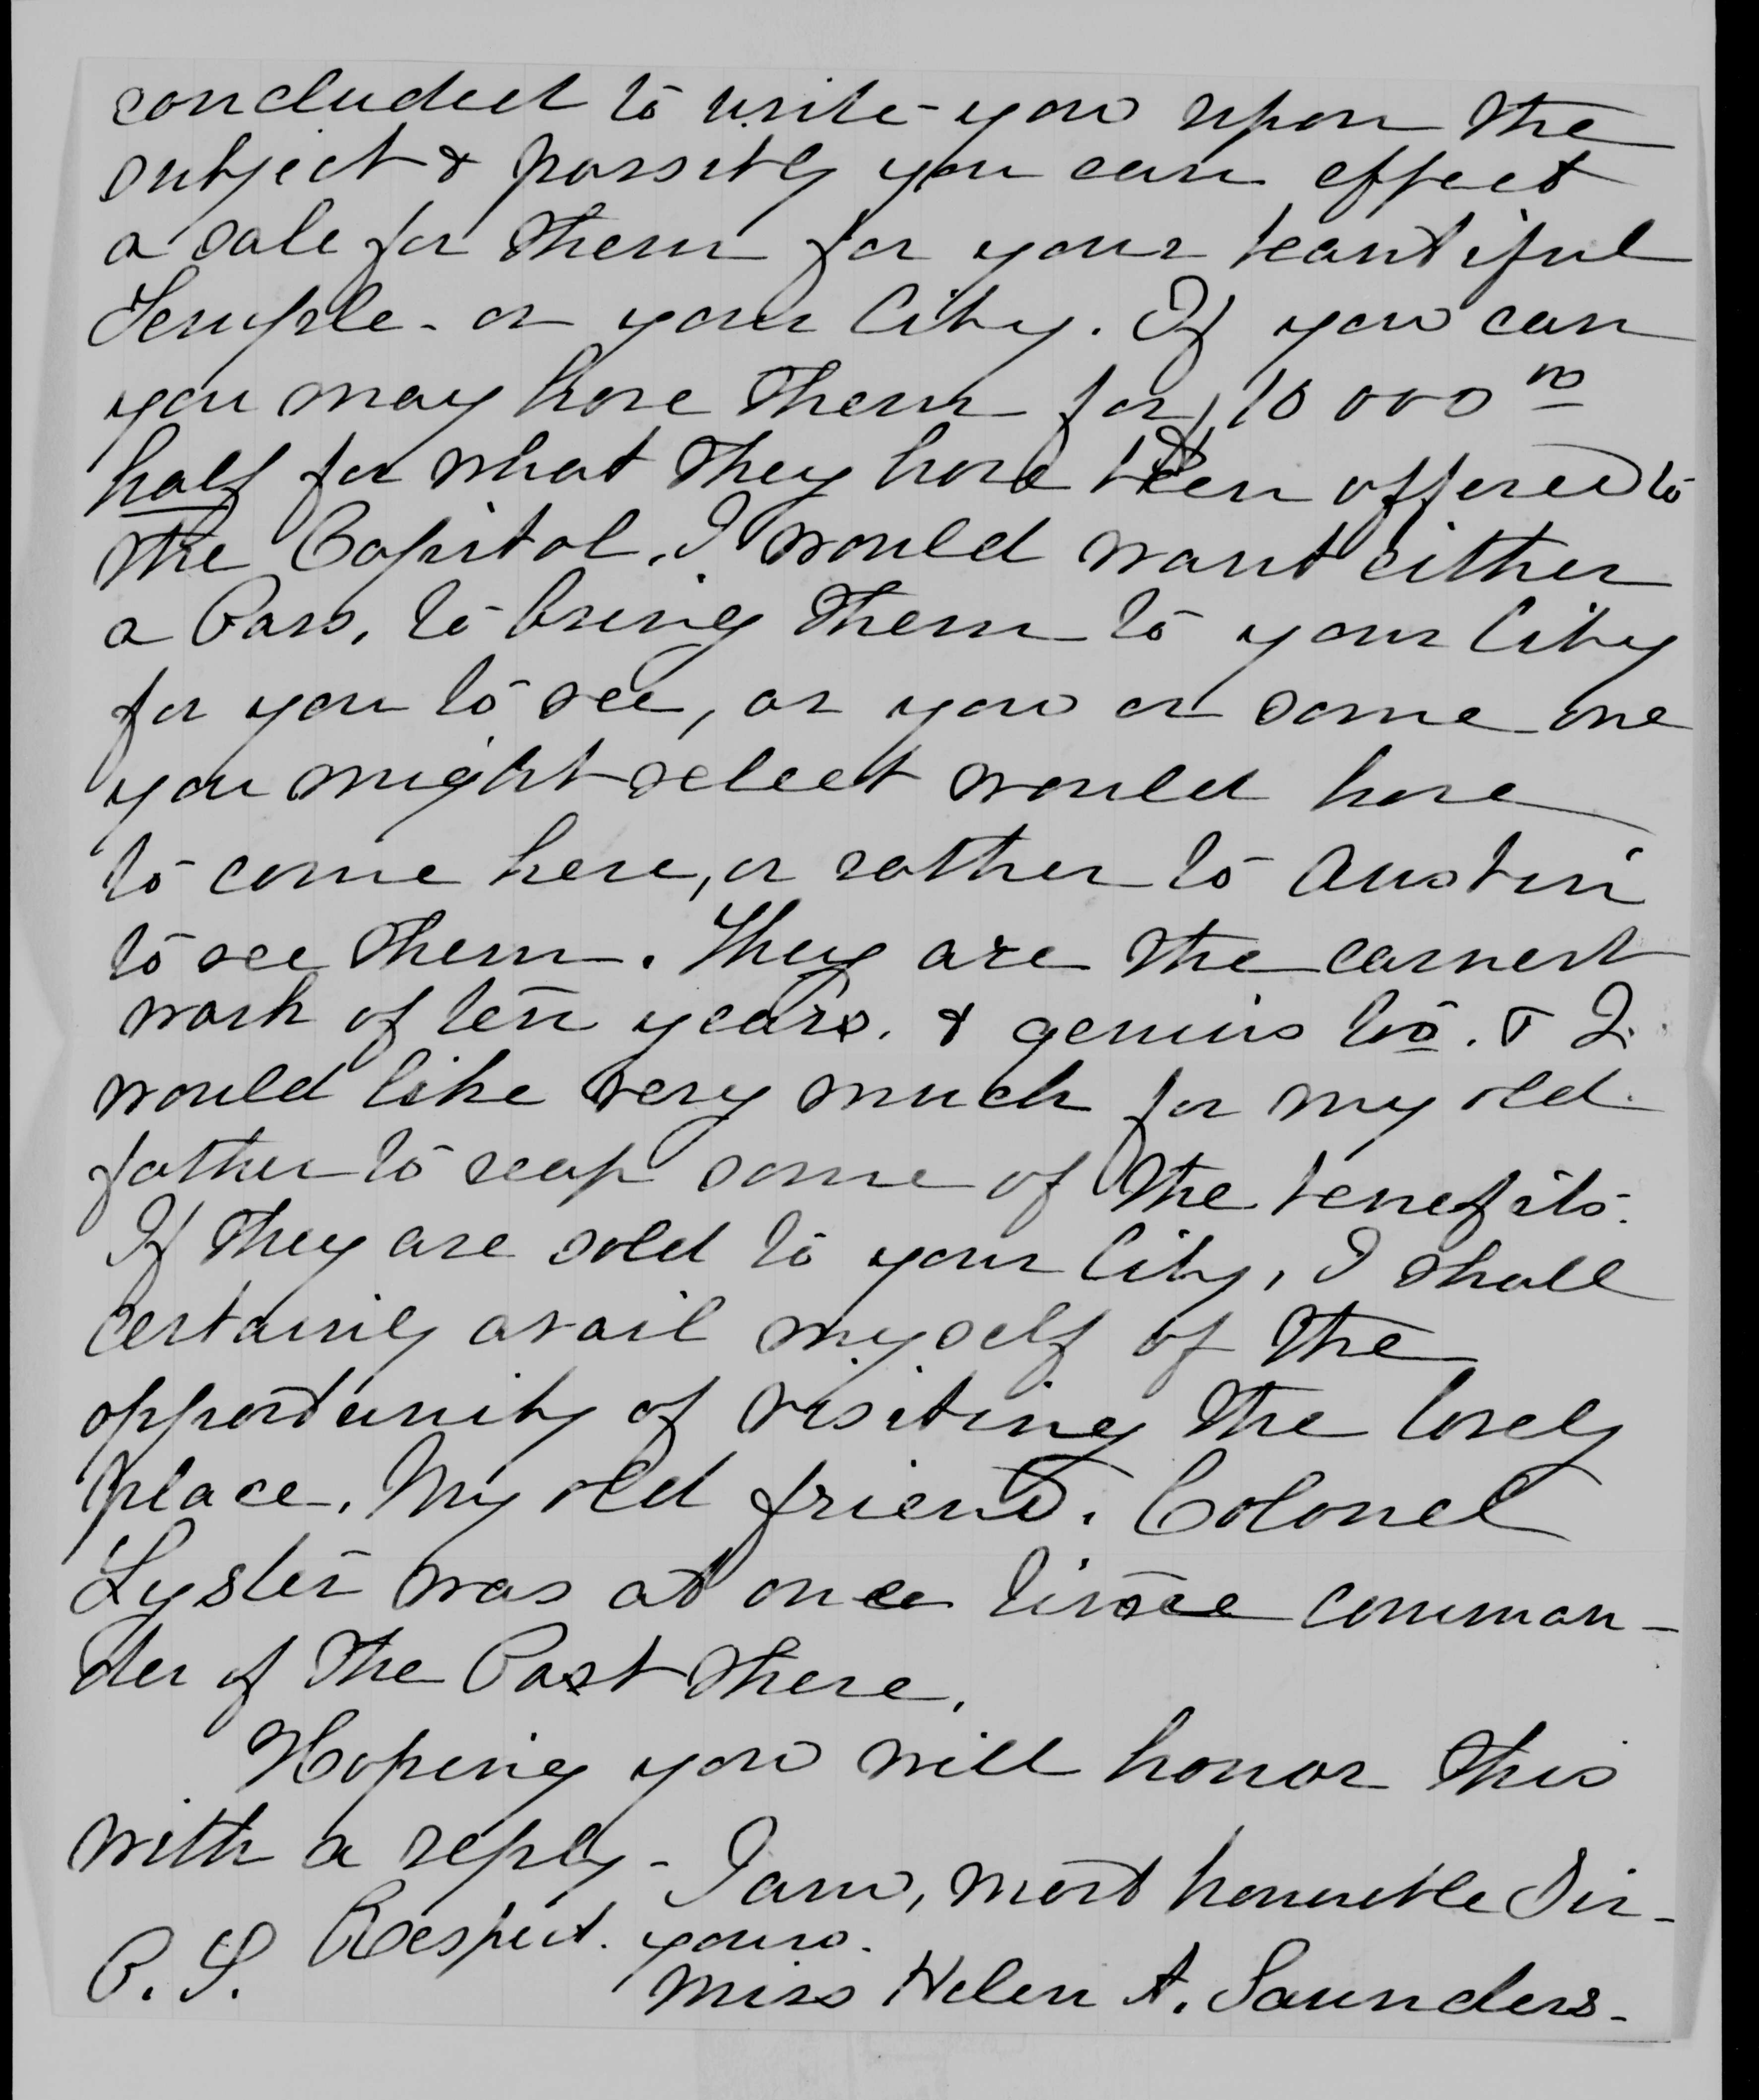 concluded to write - you upon the
subject & possibly you can effect
a sale for them for your beautiful
Temple - or your City. If you can
you may have them for $10 000 00
half for what they have been offered to
the Capitol. I would want either
a Pass, to bring them to your City
for you to see, or you or some one
you might select would have
to come here, or rather to Austin
to see them. They are the earnest
work of ten years. & genius too. & I
would like very much for my old
father to reap some of the benefits.
If they are sold to your City, I shall
certainly avail myself of the
opportunity of visiting the lovely
place. My old friend. Colonel
Lyster was at once time comman-
der of the Post there.
Hoping you will honor this
with a reply - I am, most honorable Sir -
Respect. yours.
P. S. Miss Helen A. Saunders.